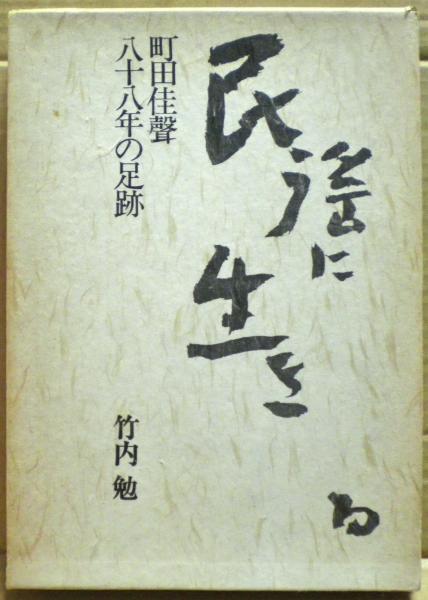 民謡に生きる
町田佳聲
八十八年の足跡
竹内 勉